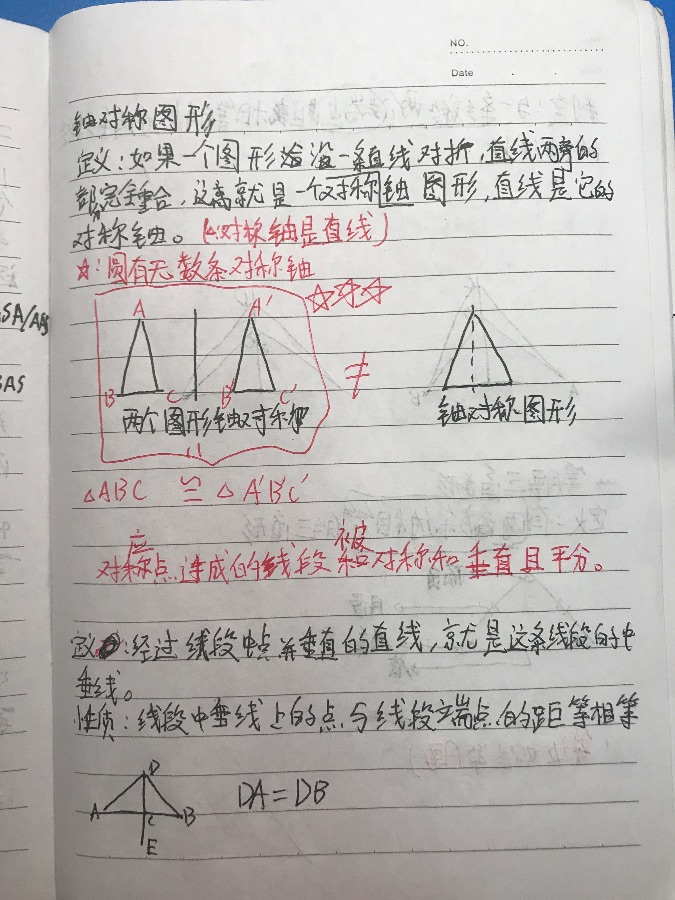 NO.
Date
轴对称图形
定义:如果一个图形沿一条直线对折,直线两旁的
部分完全重合,这就是一个对称轴图形,直线是它的
对称轴。(∴对称轴是直线)
☆:圆有无数条对称轴
A A'
B C B' C' ≠
两个图形轴对称 轴对称图形
SA/AAS
SAS
△ABC ≌ △A'B'C'
对应点连成的线段被对称轴垂直且平分。
定义:经过线段中点并垂直的直线,就是这条线段的中
垂线。
性质:线段中垂线上的点与线段端点的距等相等
D
A C B
E
DA=DB